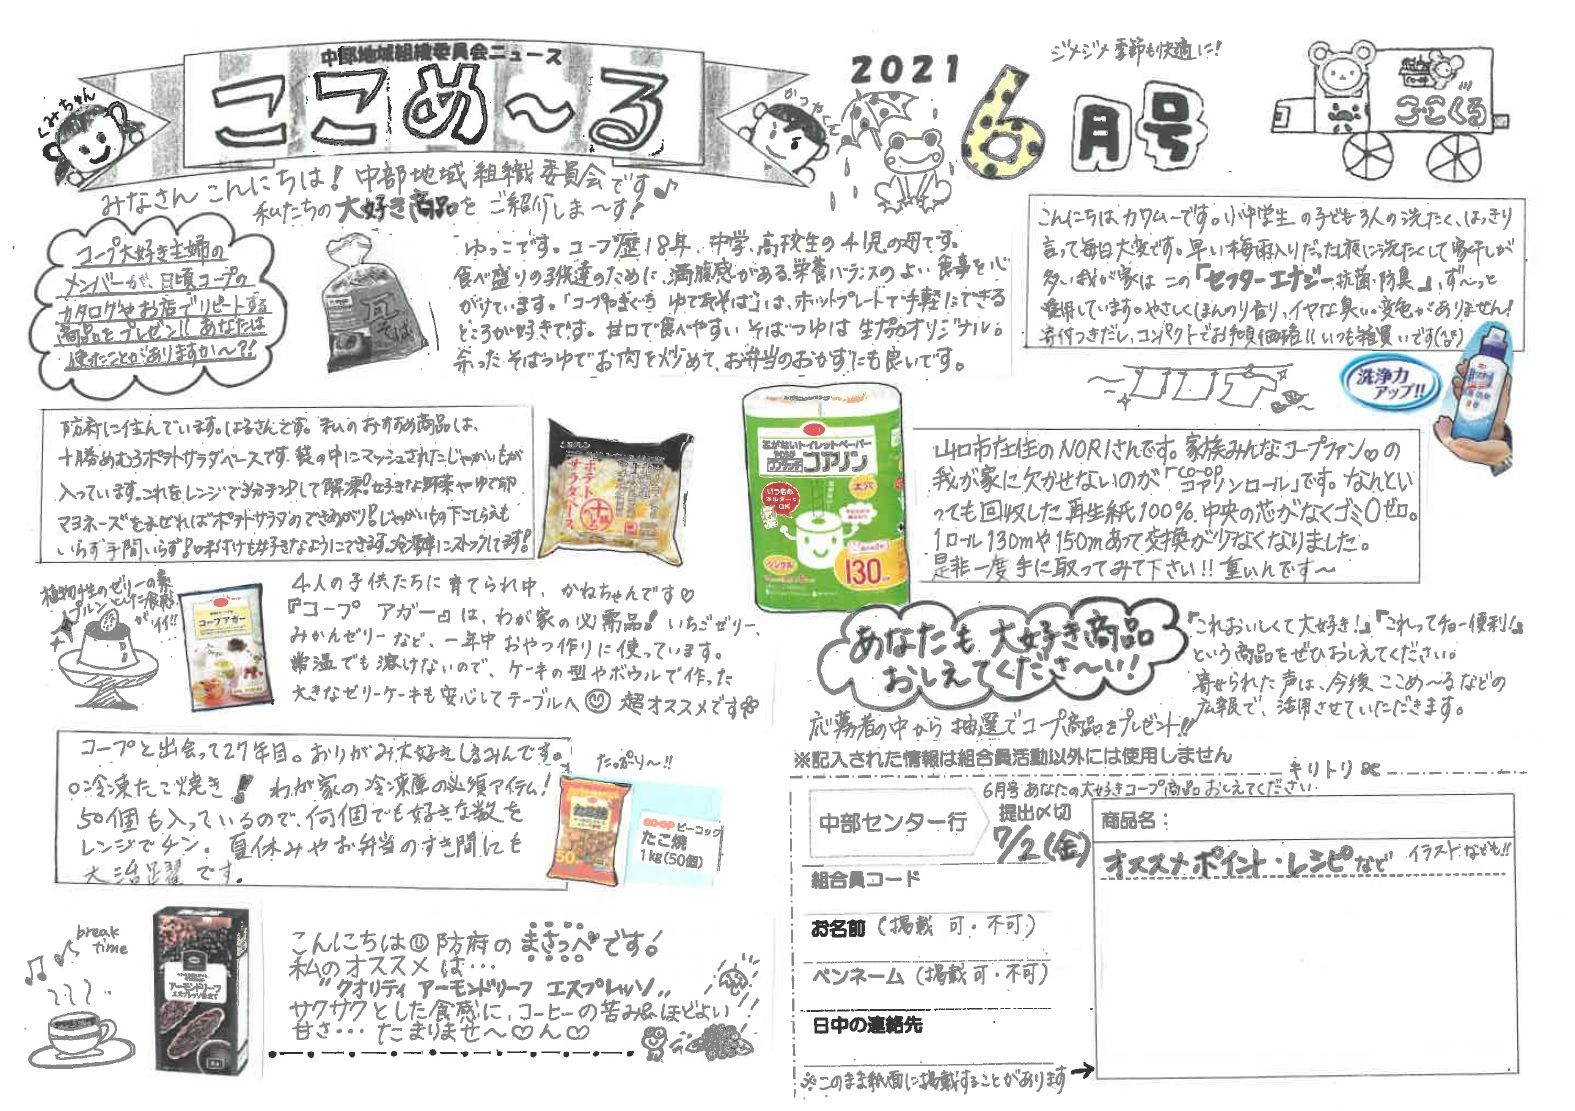 中部地域組織委員会ニュース
ここめ～る
くみちゃん
かつた
2021
6月号
ジメジメ季節も快適に!
ここくる
みなさん こんにちは! 中部地域組織委員会です♪
私たちの大好き商品をご紹介しま～す!
コープ大好き主婦の
メンバーが、日頃コープの
カタログやお店でリピートする
商品をプレゼン!! あなたは
使ったことがありますか～?!
瓦そば
ゆっこです。コープ歴18年、中学、高校生の4児の母です。
食べ盛りの子供達のために、満腹感がある栄養バランスのよい食事を心
がけています。「コープやまぐち ゆで瓦そば」は、ホットプレートで手軽にできる
ところが好きです。甘口で食べやすいそばつゆは生協オリジナル。
余ったそばつゆでお肉を炒めて、お弁当のおかずにも良いです。
こんにちはカワムーです。小中学生の子ども3人の洗たく、はっきり
言って毎日大変です。早い梅雨入りだった上夜に洗たくして家干しが
多い我が家は この「セフターエナジー抗菌・防臭」、ず～っと
愛用しています。やさしくほんのり香り、イヤな臭い・変色がありません!
寄付つきだし、コンパクトでお手頃価格!! いつも箱買いです
洗浄力
アップ!!
防府に住んでいます。はるさんです。私のおすすめ商品は、
十勝めむろポテトサラダベースです。袋の中にマッシュされたじゃがいもが
入っています。これをレンジで3分チンして解凍。好きな野菜やゆで卵
マヨネーズをまぜればポテトサラダのできあがり! じゃがいもの下ごしらえも
いらず手間いらず! 味付けも好きなようにできます。冷凍庫にストックしてます!
ポテト
サラダベース
十勝
芯がないトイレットペーパー
ワンタッチ
コアノン
いつもの
ホルダーで
OK
シングル
130
山口市在住のNORIさんです。家族みんなコープファン♡の
我が家に欠かせないのが「CO・OPコアノンロール」です。なんとい
っても回収した再生紙100%、中央の芯がなくゴミ0ゼロ。
1ロール130mや150mあって交換が少なくなりました。
是非一度手に取ってみて下さい!! 重いんです～
植物性のゼリーの素
プルンとした食感
がイイ!!
コープアガー
4人の子供たちに育てられ中、かねちゃんです♡
『コープ アガー』は、わが家の必需品! いちごゼリー、
みかんゼリーなど、一年中おやつ作りに使っています。
常温でも溶けないので、ケーキの型やボウルで作った
大きなゼリーケーキも安心してテーブルへ 超オススメです
あなたも 大好き商品
おしえてくださ～い!
『これおいしくて大好き!』『これってチョー便利!』
という商品をぜひおしえてください。
寄せられた声は、今後 ここめ～るなどの
広報で、活用させていただきます。
応募者の中から 抽選でコープ商品をプレゼント!!
※記入された情報は組合員活動以外には使用しません
コープと出会って27年目。おりがみ大好きしるみんです。
○冷凍たこ焼き! わが家の冷凍庫の必須アイテム!
50個も入っているので、何個でも好きな数を
レンジでチン。夏休みやお弁当のすき間にも
大活躍です。
たっぷり～!!
たこ焼
50
CO・OP ピーコック
たこ焼
1kg(50個)
キリトリ
6月号 あなたの大好きコープ商品おしえてください
中部センター行
提出〆切
7/2(金)
商品名:
オススメポイント・レシピなど イラストなども!!
組合員コード
お名前 (掲載 可・不可)
ペンネーム (掲載 可・不可)
日中の連絡先
※このまま紙面に掲載することがあります→
break
time
アーモンドリーフ
こんにちは 防府のまさっぺです!
私のオススメは…
"クオリティ アーモンドリーフ エスプレッソ"
サクサクとした食感に、コーヒーの苦み&ほどよい
甘さ… たまりませ～♡ん♡